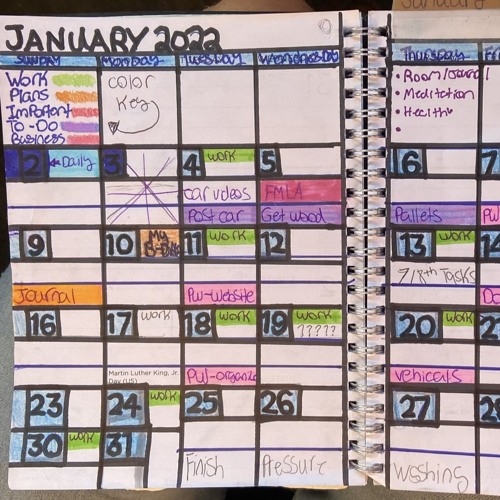 January
JANUARY 2022
SUNDAY Monday Tuesday Wednesday Thursday Fri
Work
Plans
Important
To-Do
Business
color
Key
• Room/Journal
• Meditation
• Health
2 ← Daily 3 4 work 5 6 7
car videos FMLA
Post car Get wood Pallets
9 10 My B-Day 11 work 12 13 work 14
7/8th Tasks
Journal PW-Website
16 17 work 18 work 19 work 20 work
?????
Martin Luther King, Jr.
Day (US)
PW-organize vehicals
23 24 work 25 26 27
30 work 31
Finish Pressure washing